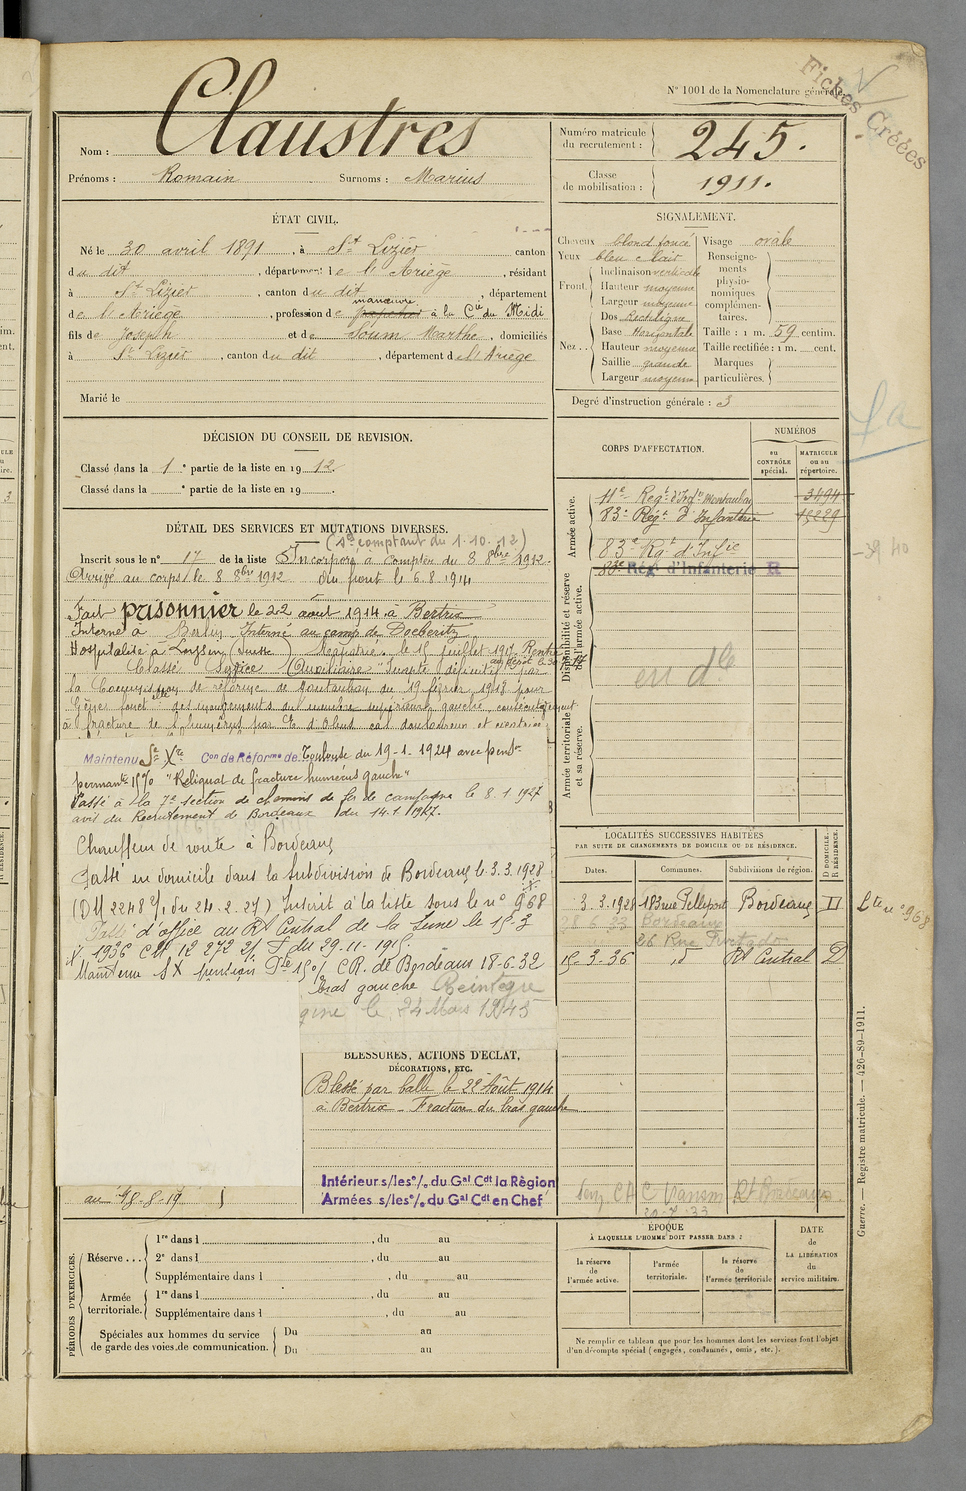 N° 1001 de la Nomenclature générale
Fiches Créées
Nom : Claustres
Prénoms : Romain Surnoms : Marius
Numéro matricule du recrutement : 245.
Classe de mobilisation : 1911.
ÉTAT CIVIL.
Né le 30 avril 1891, à St Lizier canton
du dit, département de l'Ariège, résidant
à St Lizier, canton du dit, département
manœuvre
de l'Ariège, profession de à la Cie du Midi
fils de Joseph et de Soum Marthe, domiciliés
à St Lizier, canton du dit, département de l'Ariège
Marié le
SIGNALEMENT.
Cheveux blond foncé Visage ovale
Yeux bleu clair
Front. Inclinaison verticale
Hauteur moyenne
Largeur moyenne
Nez.. Dos Rectiligne
Base Horizontale
Hauteur moyenne
Saillie grande
Largeur moyenne
Renseignements physionomiques complémentaires.
Taille : 1 m. 59 centim.
Taille rectifiée : 1 m. cent.
Marques particulières.
Degré d'instruction générale : 3
DÉCISION DU CONSEIL DE REVISION.
Classé dans la 1e partie de la liste en 1912.
Classé dans la e partie de la liste en 19 .
DÉTAIL DES SERVICES ET MUTATIONS DIVERSES.
(Sce comptant du 1.10.12)
Inscrit sous le n° 17 de la liste Incorporé à compter du 8 8bre 1912.
Arrivé au corps le 8 8bre 1912 Au front le 6.8.1914
Fait prisonnier le 22 août 1914 à Bertrix
Interné à Interné au camp de Doeberitz
Hospitalisé à Leysin (Suisse) le 15 juillet 1917 Rentré
Classé Service Auxiliaire par
la Commission de réforme de Montauban du 19 février 1918 pour
Gêne fonctlle des mouvements du membre supérieur gauche, consécutivement
à fracture de l'humérus par
Maintenu Sce Xre Con de Réforme de Toulouse du 19-1-1924 avec pension
permante 15% "Reliquat de fracture humérus gauche"
Passé à la 7e section de chemins de fer de campagne le 8.1.1927
avis du Recrutement de Bordeaux du 14.1.1927.
Chauffeur de route à Bordeaux
Passé en domicile dans la Subdivision de Bordeaux le 3.3.1928
(DM 2248 2/1 du 24.2.27) Inscrit à la liste sous le n° 968
d'office au Rt Central de la Seine le 15-3
1936 CM 12 272 2/1 du 29-11-
Maintenu SX pension Pte 15% CR. de Bordeaux 18-6-32
bras gauche Réintégré
le 24 Mars 1945
CORPS D'AFFECTATION.
NUMÉROS
au CONTRÔLE spécial.
MATRICULE ou au répertoire.
Armée active.
11e Régt d'Inf. Montauban 3494
83e Régt d'Infanterie
83e Rgt d'Infie
83e Rég. d'Infanterie R
Disponibilité et réserve de l'armée active.
Armée territoriale et sa réserve.
LOCALITÉS SUCCESSIVES HABITÉES
PAR SUITE DE CHANGEMENTS DE DOMICILE OU DE RÉSIDENCE.
Dates. Communes. Subdivisions de région. D DOMICILE. R RÉSIDENCE.
3.3.1928 183 rue Pelleport Bordeaux D
Bordeaux
26 Rue Furtado
15-3-36 id Rt Central D
Lte n° 968
BLESSURES, ACTIONS D'ÉCLAT,
DÉCORATIONS, ETC.
Blessé par balle le 22 Août 1914
à Bertrix. Fracture du bras gauche
Intérieur s/les o/. du Gal Cdt la Région
Armées s/les o/. du Gal Cdt en Chef
PÉRIODES D'EXERCICES.
Réserve... 1re dans l , du au
2e dans l , du au
Supplémentaire dans l , du au
Armée territoriale. 1re dans l , du au
Supplémentaire dans l , du au
Spéciales aux hommes du service de garde des voies de communication. Du au
Du au
ÉPOQUE
À LAQUELLE L'HOMME DOIT PASSER DANS :
la réserve de l'armée active.
l'armée territoriale.
la réserve de l'armée territoriale
DATE DE LA LIBÉRATION du service militaire.
Ne remplir ce tableau que pour les hommes dont les services font l'objet
d'un décompte spécial (engagés, condamnés, omis, etc.).
Guerre. — Registre matricule. — 426-89-1911.